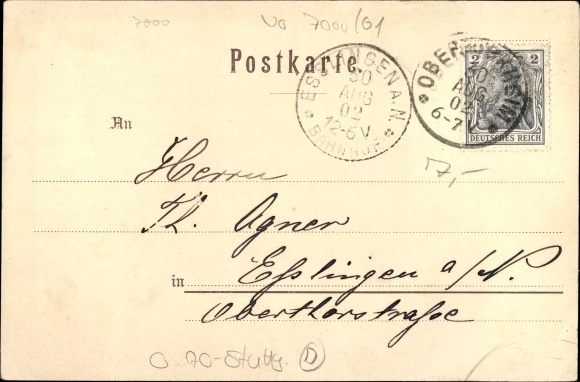 7000 No 7000/G1
Postkarte.
ESSLINGEN A.N.
30
AUG
02
12-6V
BAHNHOF
OBERTÜRKHEIM
30
AUG
02
6-7
2 2
DEUTSCHES REICH
An
17,-
Herrn
Th. Agner
in Eßlingen a/N.
Oberthorstraße
0.70-Stuttg. D